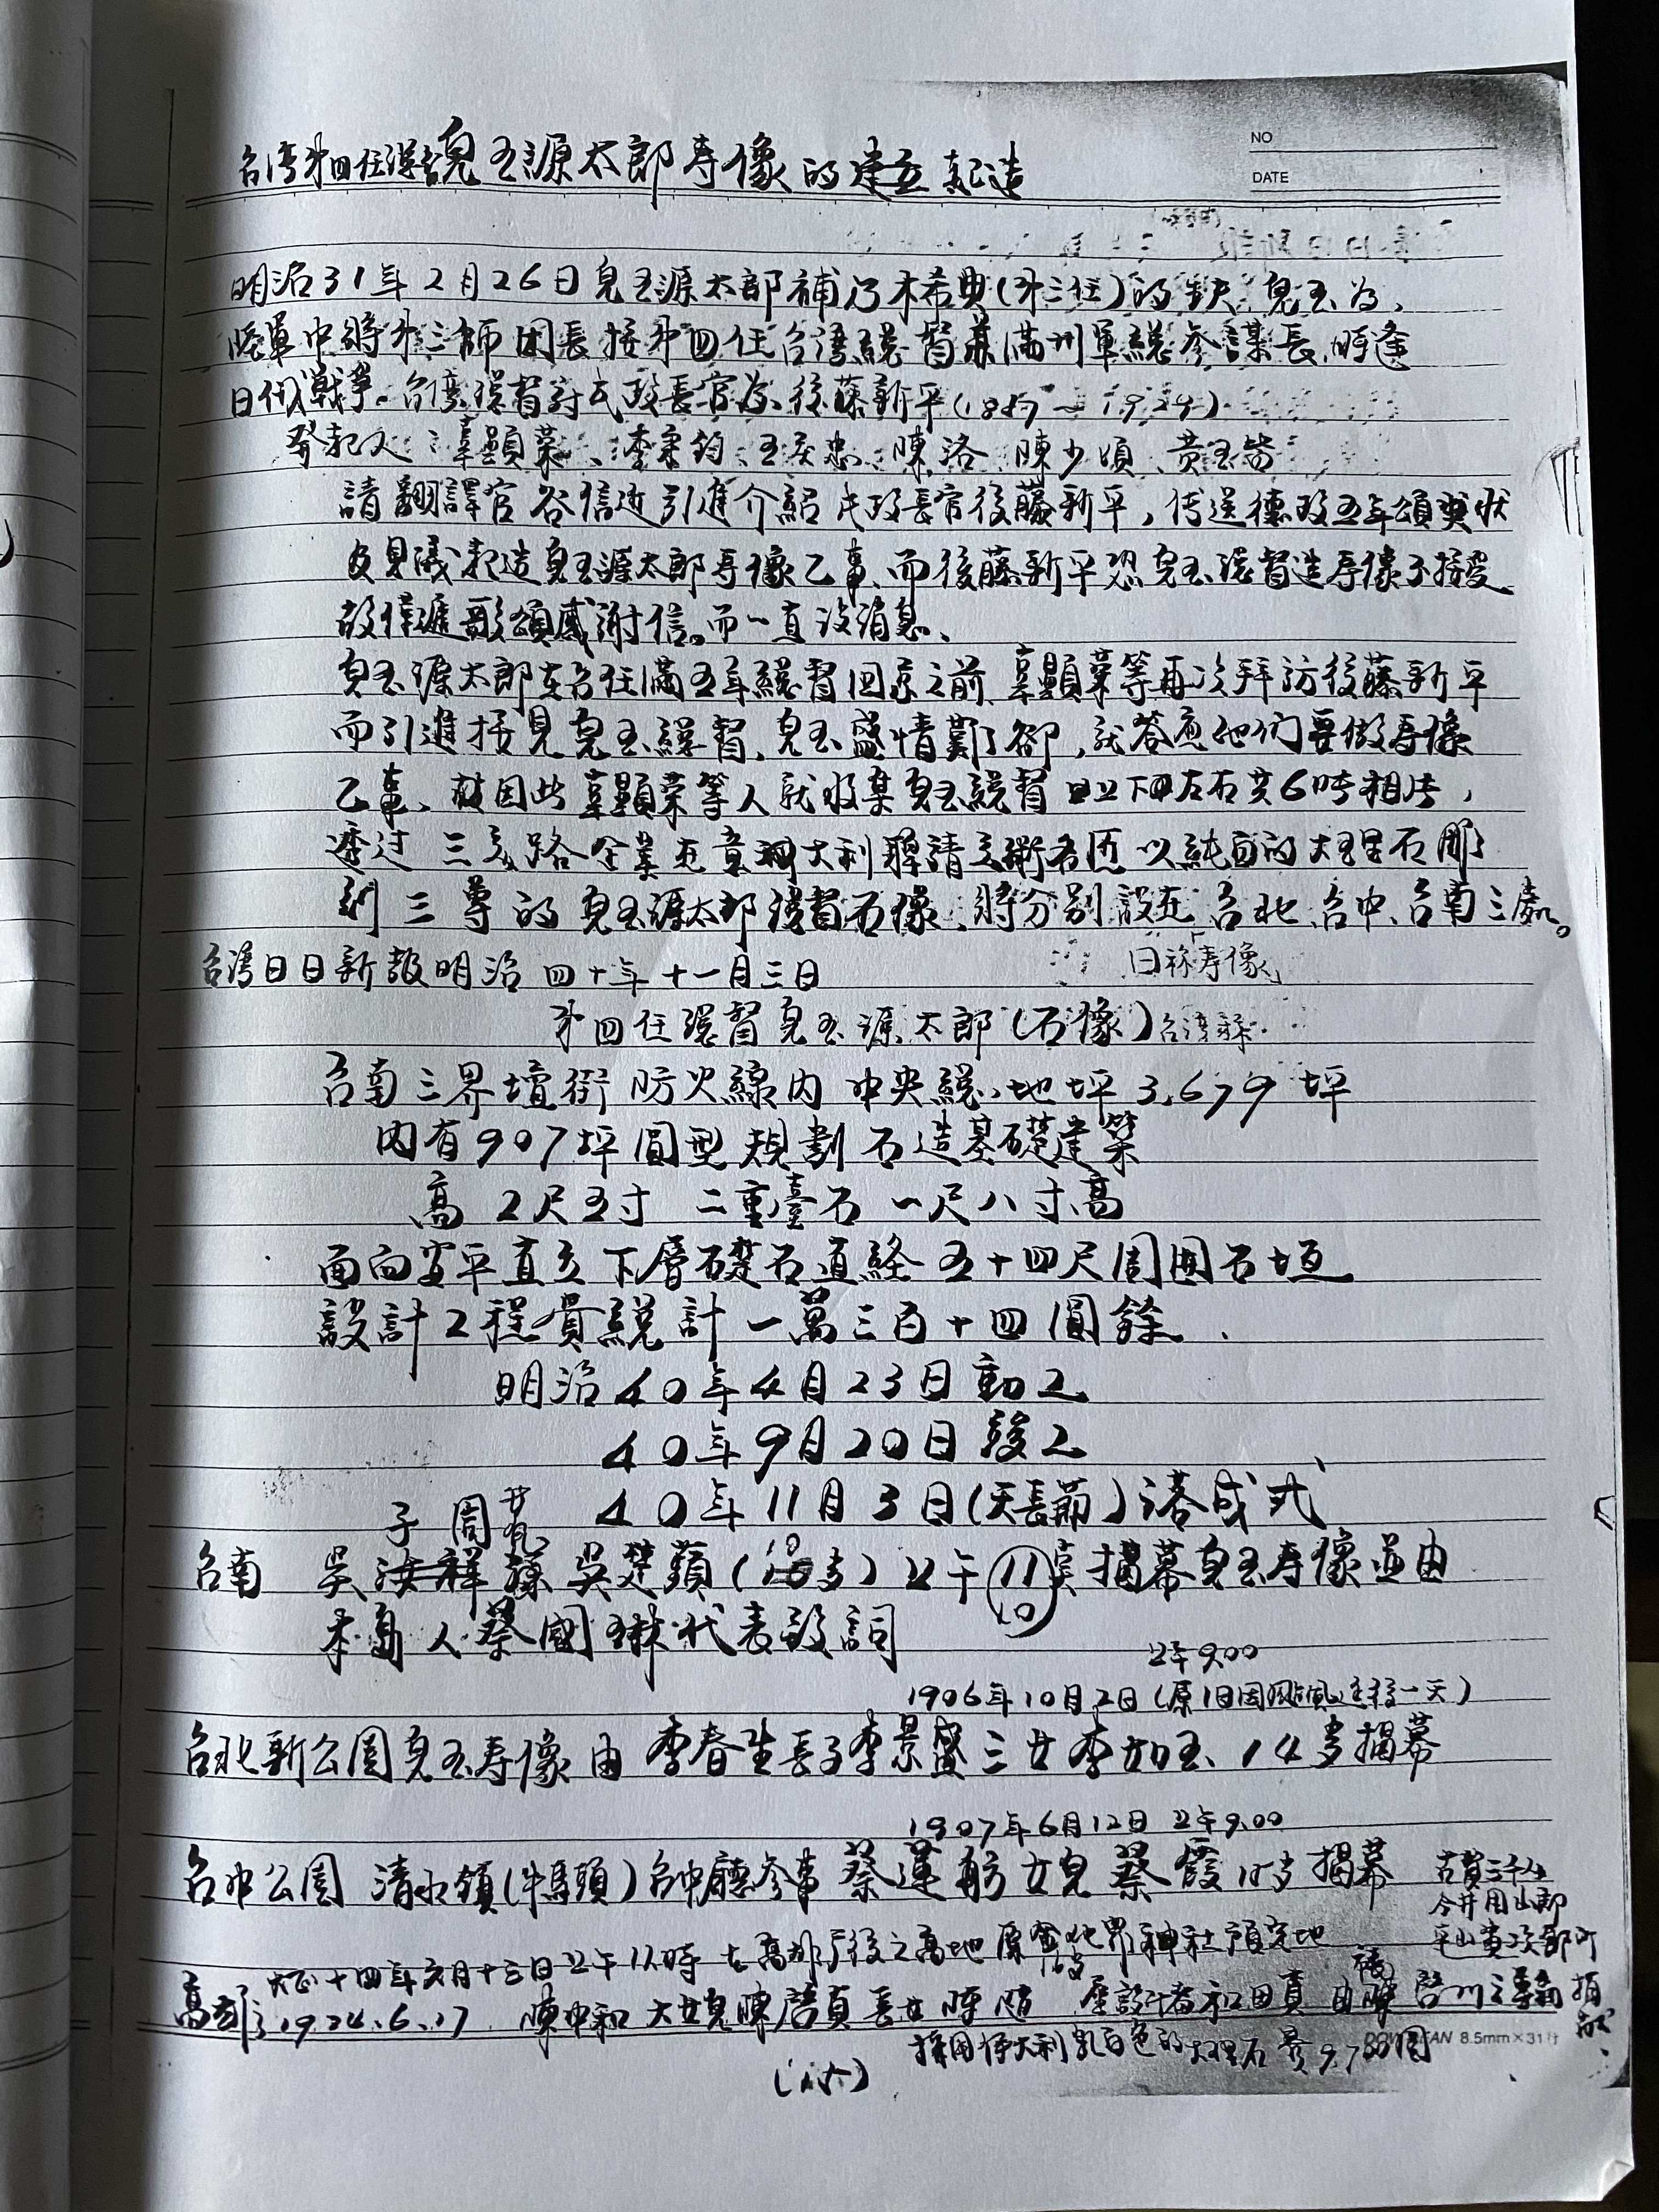 台湾第四任総督児玉源太郎寿像的建立起造
NO
DATE
明治31年2月26日児玉源太郎補乃木希典(第三任)的缺 児玉為,
陸軍中將第三師団長接第四任台湾総督兼満州軍総参謀長,時逢
日俄戰爭。台湾総督府民政長官為後藤新平(1857~1929)
發起人:辜顯榮、李秉鈞、王慶忠、陳洛 陳少頃 黃玉階
請翻譯官谷信近引進介紹民政長官後藤新平,传送德政五年頌奬狀
及見議起造児玉源太郎寿像乙事、而後藤新平恐児玉總督造寿像不接受
故僅遞歌頌感謝信。而一直没消息、
児玉源太郎在台任滿五年総督回京之前 辜顯榮等再次拜訪後藤新平
而引進接見児玉総督,児玉盛情難卻,就答應他们要做寿像
乙事、故因此辜顯榮等人就收集児玉総督上下左右共6吋相片,
透过三井 企業在意大利聘請 名匠以純白的大理石彫
刻三尊的児玉源太郎総督石像、將分別設在台北 台中、台南三處。
台湾日日新報明治四十年十一月三日 日称寿像
第四任總督児玉源太郎(石像)台湾
台南三界壇街防火線内中央総地坪3,679坪
内有907坪圓型規劃石造基礎建築
高2尺五寸 二重臺石一尺八寸高
面向安平直立下層礎石直経五十四尺周圍石垣
設計工程費総計一萬三百十四圓餘.
明治40年4月23日動工
40年9月20日竣工
子 周 40年11月3日(天長節)落成式
台南 吳汝祥孫 吳楚蘋( 歲)上午11 10 揭幕児玉寿像並由
本島人蔡國琳代表致詞
上午9.00
1906年10月2日(原1日因颱風延後一天)
台北新公園児玉寿像由李春生長子李景盛三女李如玉、14歲揭幕
1907年6月12日 上午9.00
台中公園 清水鎮(牛罵頭)台中廳參事蔡蓮舫女児蔡霞 歲揭幕 古賀三千人
今井周三郎
平山
大正十四年六月十三日上午 時 在 後之高地原 神社預定地
高雄:1924.6.17 陳中和 大女兒陳 貞長女 座設計者和田真 由陳啓川 揭
採用伊大利乳白色的大理石費9,700圓
8.5mm×31行